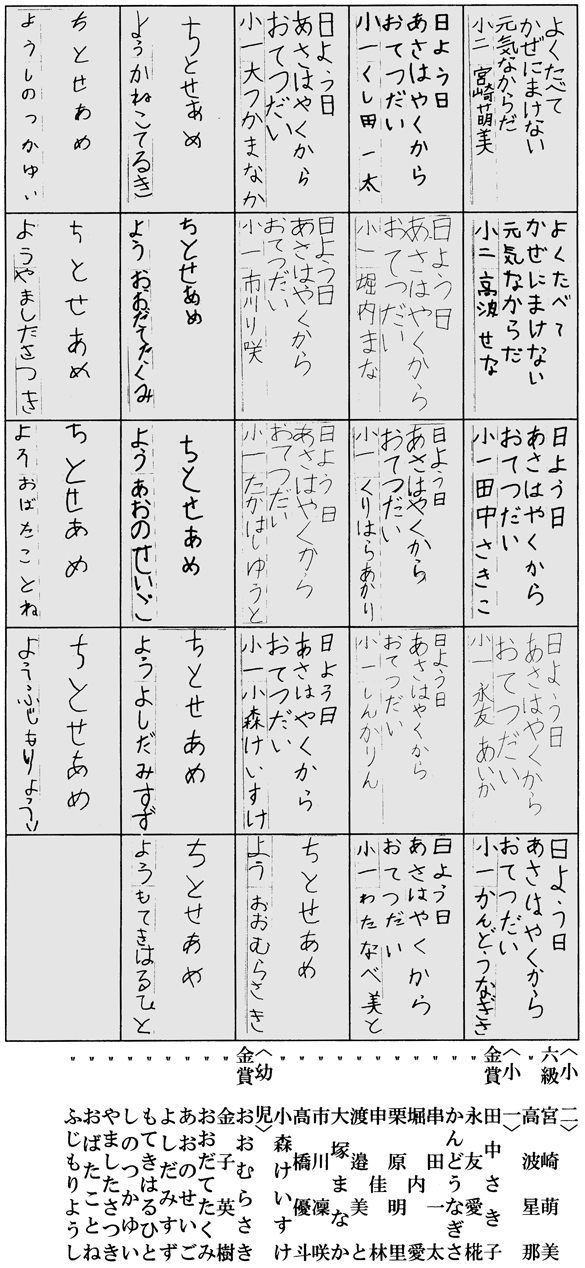 よくたべて
かぜにまけない
元気なからだ
小二 宮崎萌美
よくたべて
かぜにまけない
元気なからだ
小二 高波せな
日よう日
あさはやくから
おてつだい
小一田中さきこ
日よう日
あさはやくから
おてつだい
小一永友あいか
日よう日
あさはやくから
おてつだい
小一かんどうなぎさ
日よう日
あさはやくから
おてつだい
小一くし田一太
日よう日
あさはやくから
おてつだい
小一堀内まな
日よう日
あさはやくから
おてつだい
小一くりはらあかり
日よう日
あさはやくから
おてつだい
小一しんかりん
日よう日
あさはやくから
おてつだい
小一わたなべ美と
日よう日
あさはやくから
おてつだい
小一大つかまなか
日よう日
あさはやくから
おてつだい
小一市川り咲
日よう日
あさはやくから
おてつだい
小一たかはしゆうと
日よう日
あさはやくから
おてつだい
小一小森けいすけ
ちとせあめ
よう おおむらさき
ちとせあめ
ようかねこてるき
ちとせあめ
よう おおだてたくみ
ちとせあめ
ようあおのせいご
ちとせあめ
ようよしだみすず
ちとせあめ
ようもてきはるひと
ちとせあめ
ようしのつかゆい
ちとせあめ
ようやましたさつき
ちとせあめ
ようおばたことね
ちとせあめ
ようふじもりようじ
〈小二〉
六級 宮崎萌美
〃 高波星那
〈小一〉
金賞 田中さき子
〃 永友愛椛
〃 かんどうなぎさ
〃 串田一太
〃 堀内愛
〃 栗原明里
〃 申佳林
〃 渡邉美と
〃 大塚まなか
〃 市川凜咲
〃 高橋優斗
〃 小森けいすけ
〈幼児〉
金賞 おおむらさき
〃 金子英樹
〃 おおだてたくみ
〃 あおのせいご
〃 よしだみすず
〃 もてきはるひと
〃 しのつかゆい
〃 やましたさつき
〃 おばたことね
〃 ふじもりようし